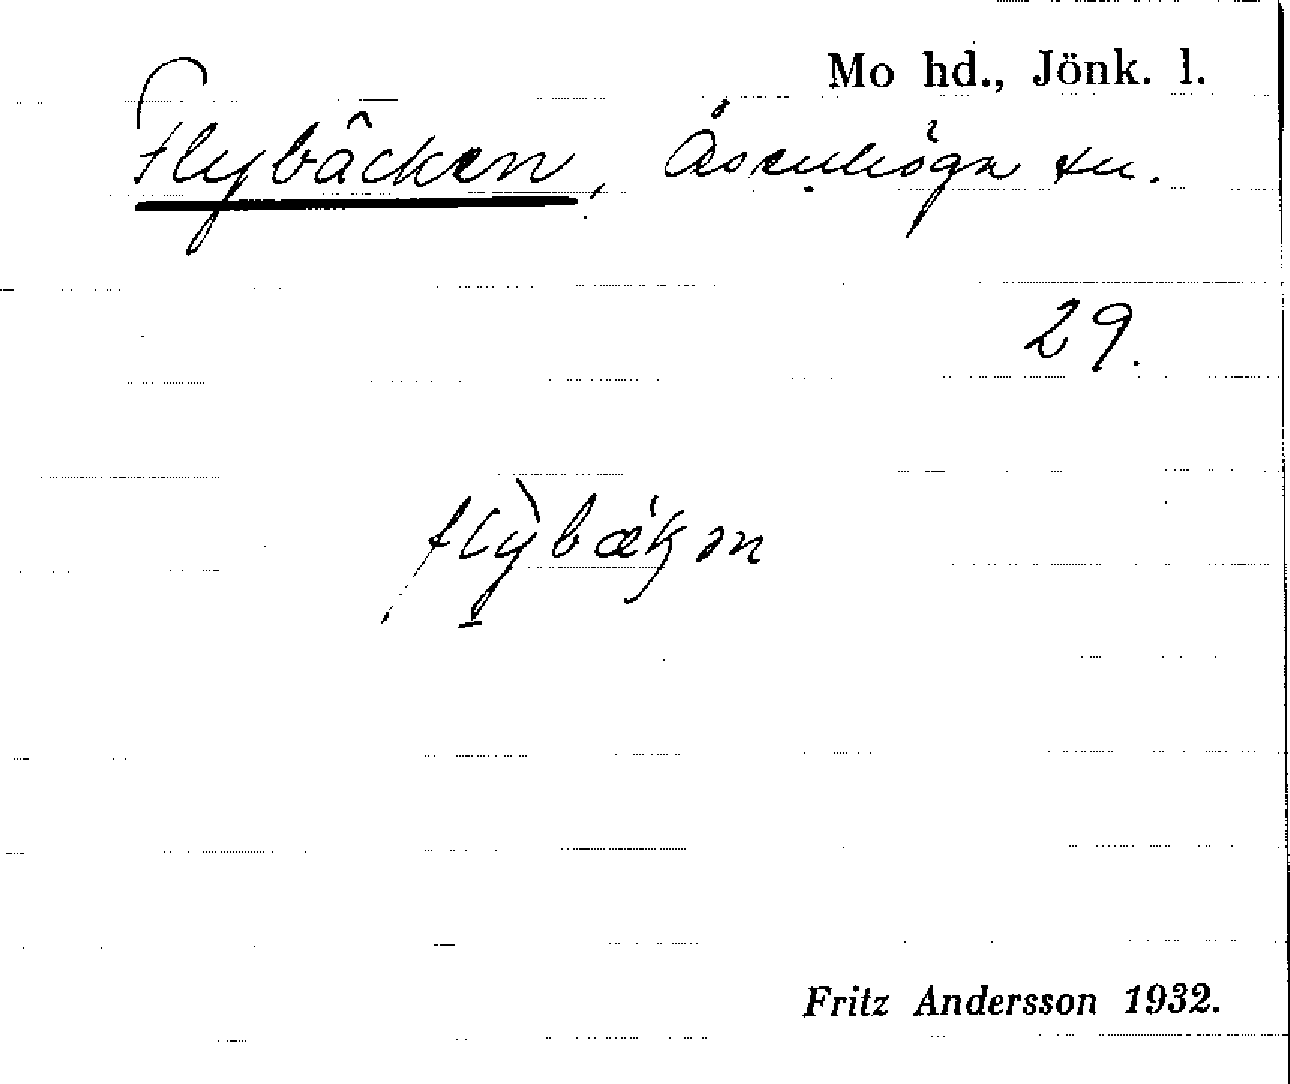 Mo hd., Jönk. l.
Flybäcken, Åsenhöga sn.
29.
flỳbækən
Fritz Andersson 1932.